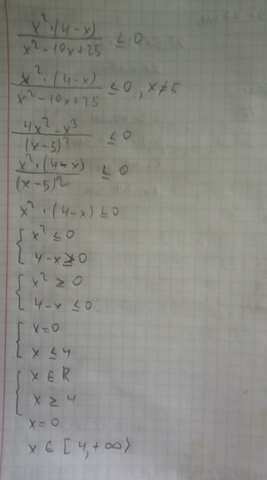 x²·(4-x) / x²-10x+25 ≤ 0
x²·(4-x) / x²-10x+25 ≤ 0, x≠5
4x²-x³ / (x-5)² ≤ 0
x²·(4-x) / (x-5)² ≤ 0
x²·(4-x) ≤ 0
{ x² ≤ 0
4-x ≥ 0
{ x² ≥ 0
4-x ≤ 0
{ x=0
x ≤ 4
{ x ∈ R
x ≥ 4
x=0
x ∈ [4, +∞)